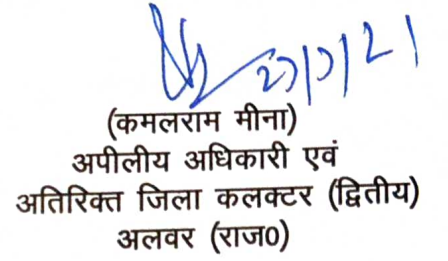 (कमलराम मीना)
अपीलीय अधिकारी एवं
अतिरिक्त जिला कलक्टर (द्वितीय)
अलवर (राज0)